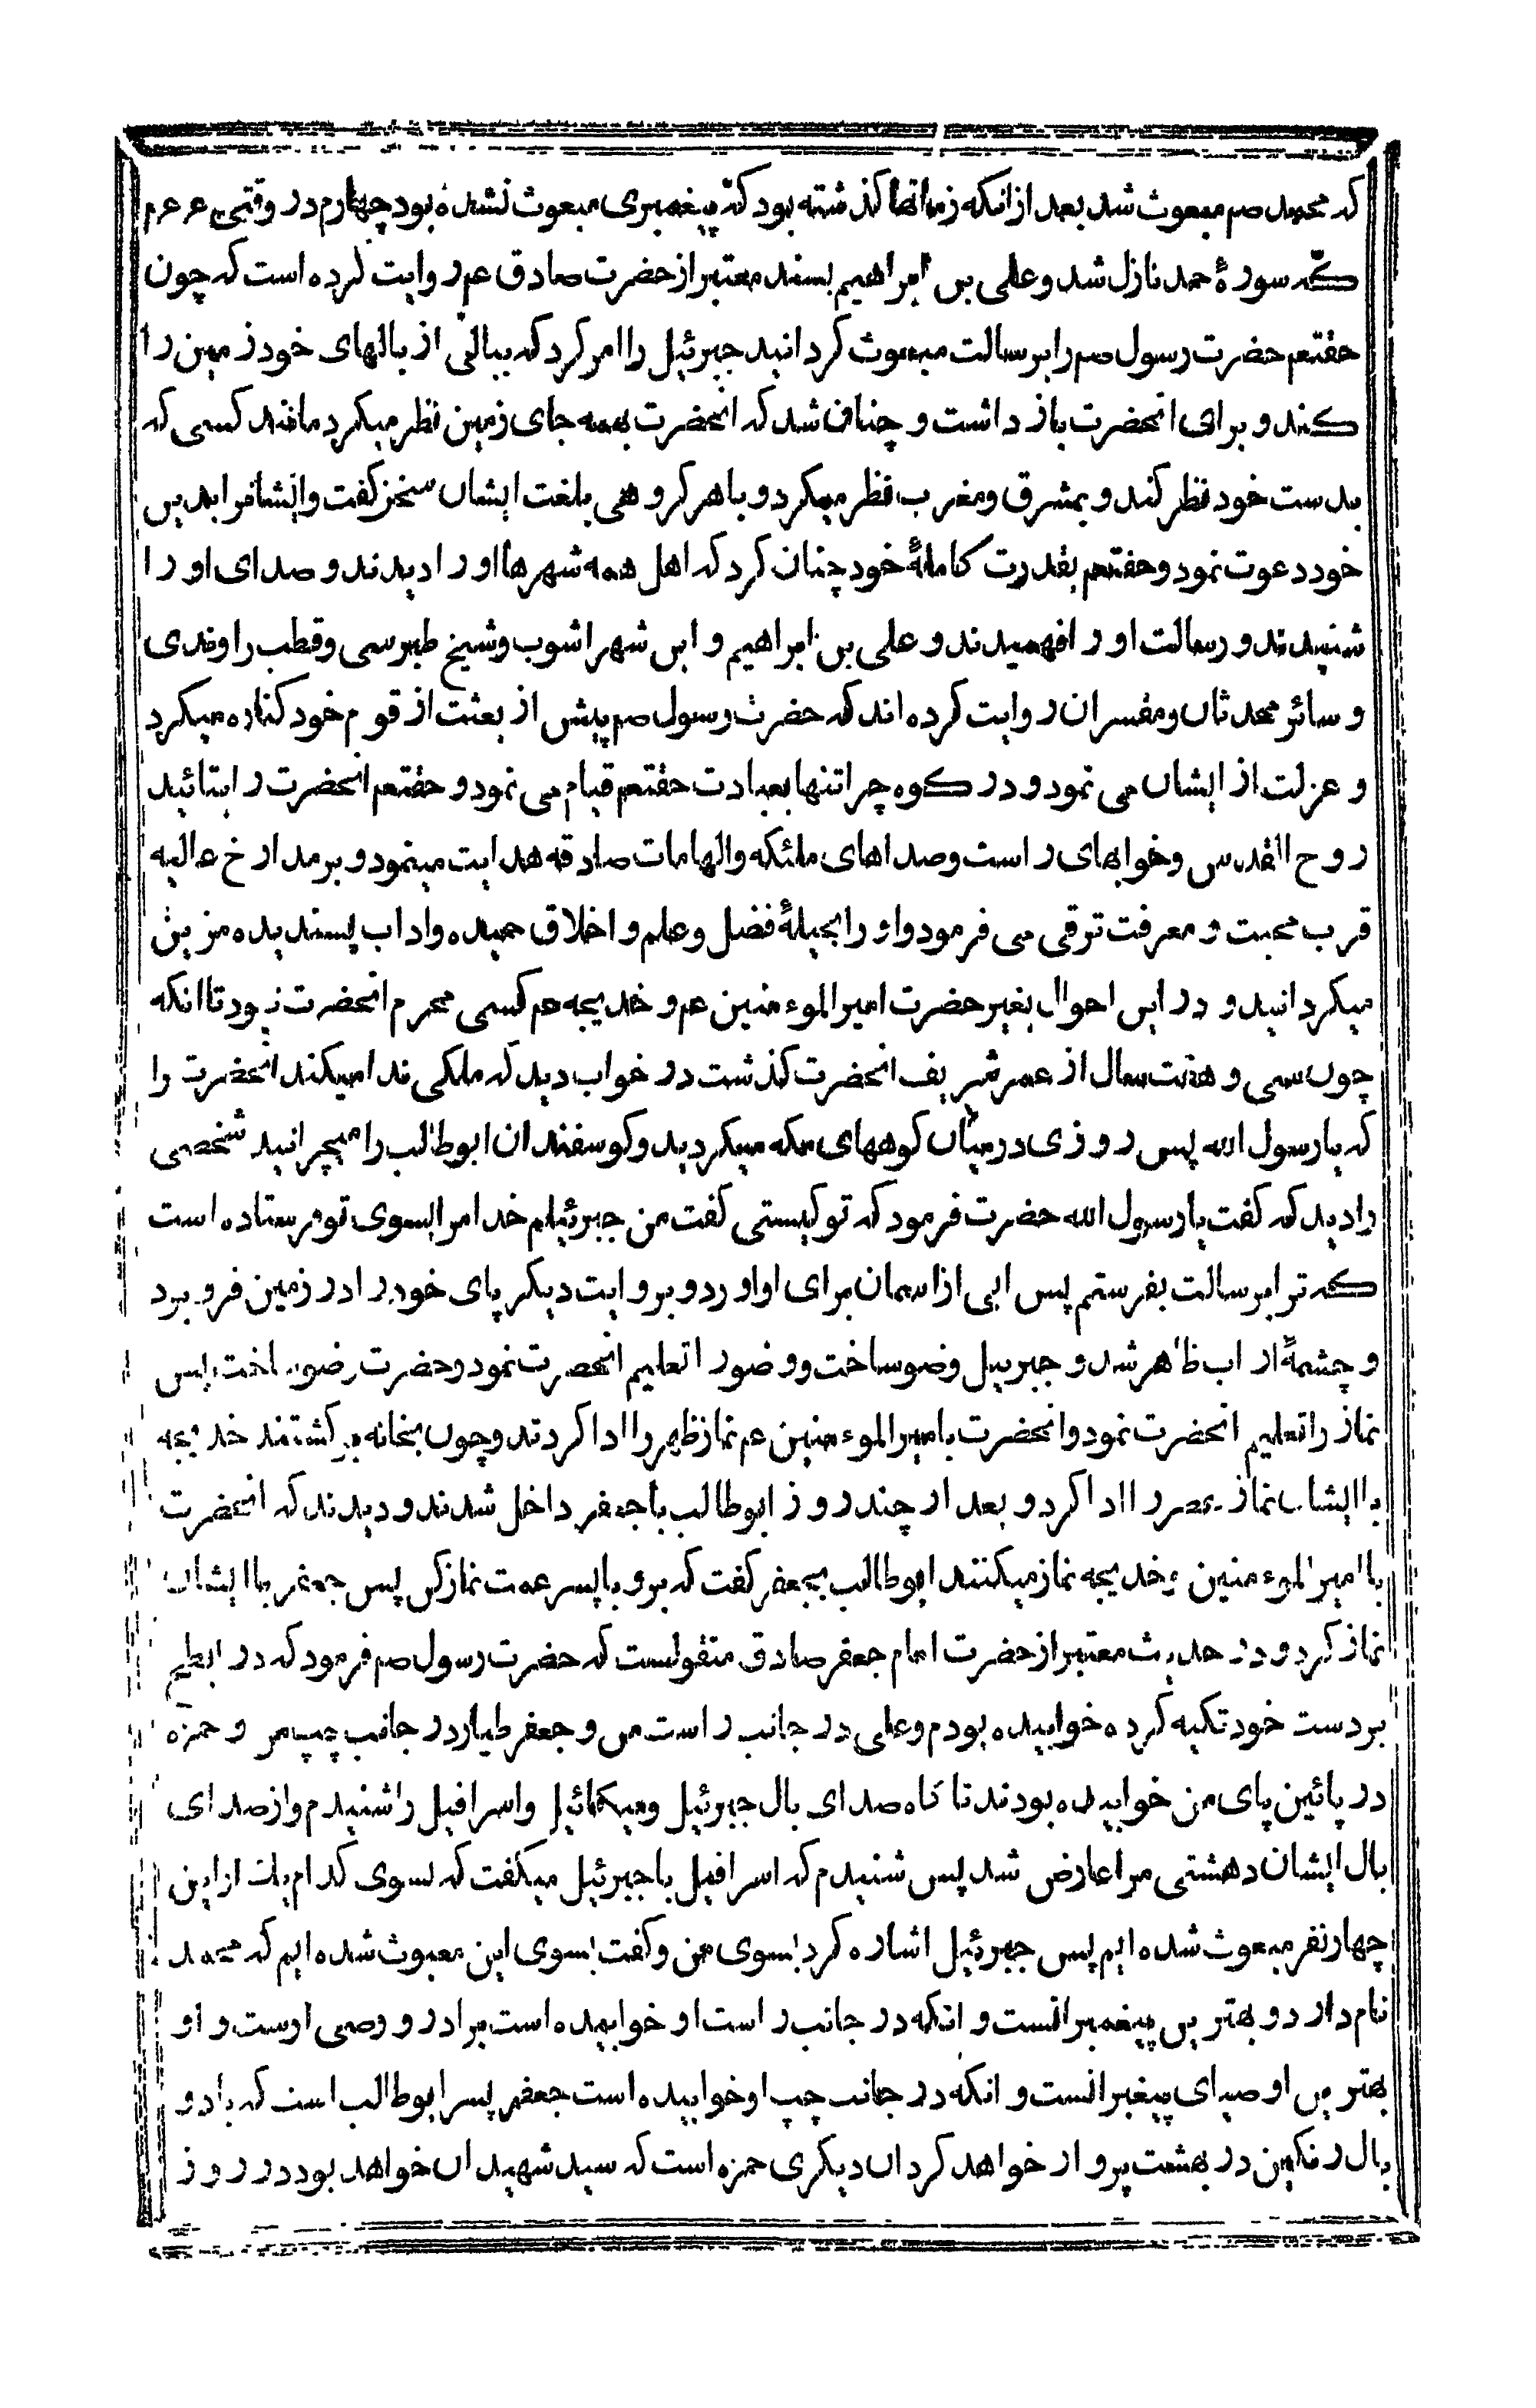 که محمد صم مبعوث شد بعد از انکه زمانها کذشته بود که پیغمبری مبعوث نشده بود چهارم در وقتی
که سورهٔ حمد نازل شد و علی بن ابراهیم بسند معتبر از حضرت صادق عم روایت کرده است که چون
حقتعم حضرت رسول صم را برسالت مبعوث کردانید جبرئیل را امر کرد که ببالی از بالهای خود زمین را
کند و برای انحضرت باز داشت و چنان شد که انحضرت بهمه جای زمین نظر میکرد مانند کسی که
بدست خود نظر کند و بمشرق و مغرب نظر میکرد و با هر کروهی بلغت ایشان سخن کفت و ایشانرا بدین
خود دعوت نمود و حقتعم بقدرت کاملهٔ خود چنان کرد که اهل همه شهرها او را دیدند و صدای او را
شنیدند و رسالت او را فهمیدند و علی بن ابراهیم و ابن شهراشوب و شیخ طبرسی و قطب راوندی
و سائر محدثان و مفسران روایت کرده اند که حضرت رسول صم پیش از بعثت از قوم خود کناره میکرد
و عزلت از ایشان می نمود و در کوه حرا تنها بعبادت حقتعم قیام می نمود و حقتعم انحضرت را بتائید
روح القدس و خوابهای راست و صداهای ملئکه و الهامات صادقه هدایت مینمود و بر مدارج عالیه
قرب محبت و معرفت ترقی می فرمود و او را بحیلهٔ فضل و علم و اخلاق حمیده و اداب پسندیده مزین
میکردانید و در این احوال بغیر حضرت امیر الموءمنین عم و خدیجه عم کسی محرم انحضرت نبود تا انکه
چون سی و هفت سال از عمر شریف انحضرت کذشت در خواب دید که ملکی ندا میکند انحضرت را
که یا رسول الله پس روزی در میان کوههای مکه میکردید و کوسفندان ابوطالب را میچرانید شخصی
را دید که کفت یا رسول الله حضرت فرمود که تو کیستی کفت من جبرئیلم خدا مرا بسوی تو فرستاده است
که ترا برسالت بفرستم پس ابی از اسمان برای او اورد و بروایت دیکر پای خود را در زمین فرو برد
و چشمهٔ از اب ظاهر شد و جبرییل وضو ساخت و وضو را تعلیم انحضرت نمود و حضرت وضو ساخت پس
نماز را تعلیم انحضرت نمود و انحضرت با میر الموءمنین عم نماز ظهر را ادا کردند و چون بخانه بر کشتند خدیجه
با ایشان نماز عصر را ادا کرد و بعد از چند روز ابوطالب با جعفر داخل شدند و دیدند که انحضرت
با امیر الموءمنین و خدیجه نماز میکنند ابوطالب بجعفر کفت که برو با پسر عمت نماز کن پس جعفر با ایشان
نماز کرد و در حدیث معتبر از حضرت امام جعفر صادق منقولست که حضرت رسول صم فرمود که در ابطح
بر دست خود تکیه کرده خوابیده بودم و علی در جانب راست من و جعفر طیار در جانب چپ من و حمزه
در پائین پای من خوابیده بودند نا کاه صدای بال جبرئیل و میکائیل و اسرافیل را شنیدم و از صدای
بال ایشان دهشتی مرا عارض شد پس شنیدم که اسرافیل با جبرئیل میکفت که بسوی کدام یک از این
چهار نفر مبعوث شده ایم پس جبرئیل اشاره کرد بسوی من و کفت بسوی این معبوث شده ایم که محمد
نام دارد و بهترین پیغمبرانست و انکه در جانب راست او خوابیده است برادر و وصی اوست و او
بهترین اوصیای پیغبرانست و انکه در جانب چپ او خوابیده است جعفر پسر ابوطالب است که با دو
بال رنکین در بهشت پرواز خواهد کرد ان دیکری حمزه است که سید شهیدان خواهد بود در روز